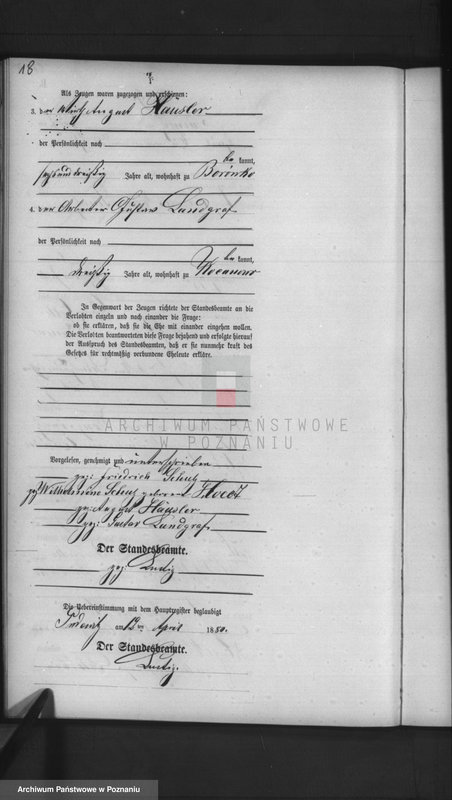 18
Als Zeugen waren zugezogen und erschienen:
3. der August Häusler
der Persönlichkeit nach
kannt,
sechsunddreißig Jahre alt, wohnhaft zu
4. der Arbeiter Gustav Landgraf
der Persönlichkeit nach
kannt,
dreißig Jahre alt, wohnhaft zu
In Gegenwart der Zeugen richtete der Standesbeamte an die
Verlobten einzeln und nach einander die Frage:
ob sie erklären, daß sie die Ehe mit einander eingehen wollen.
Die Verlobten beantworteten diese Frage bejahend und erfolgte hierauf
der Ausspruch des Standesbeamten, daß er sie nunmehr kraft des
Gesetzes für rechtmäßig verbundene Eheleute erkläre.
ARCHIWUM PAŃSTWOWE
W POZNANIU
Vorgelesen, genehmigt und unterschrieben
gez: Friedrich Schulz
gez: Wilhelmine Schulz geborene
gez: August Häusler
gez: Gustav Landgraf
Der Standesbeamte.
gez:
Die Uebereinstimmung mit dem Hauptregister beglaubigt
am 12ten April 1880.
Der Standesbeamte.
Archiwum Państwowe w Poznaniu